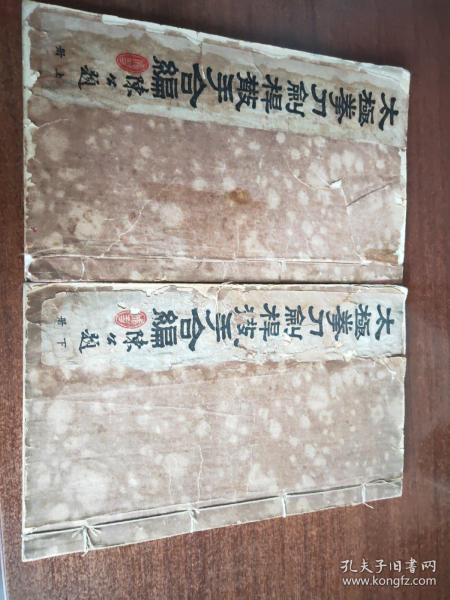 太極拳刀劍桿散手合編
陳公題
上冊
太極拳刀劍桿散手合編
陳公題
下冊
孔夫子旧书网
www.kongfz.com